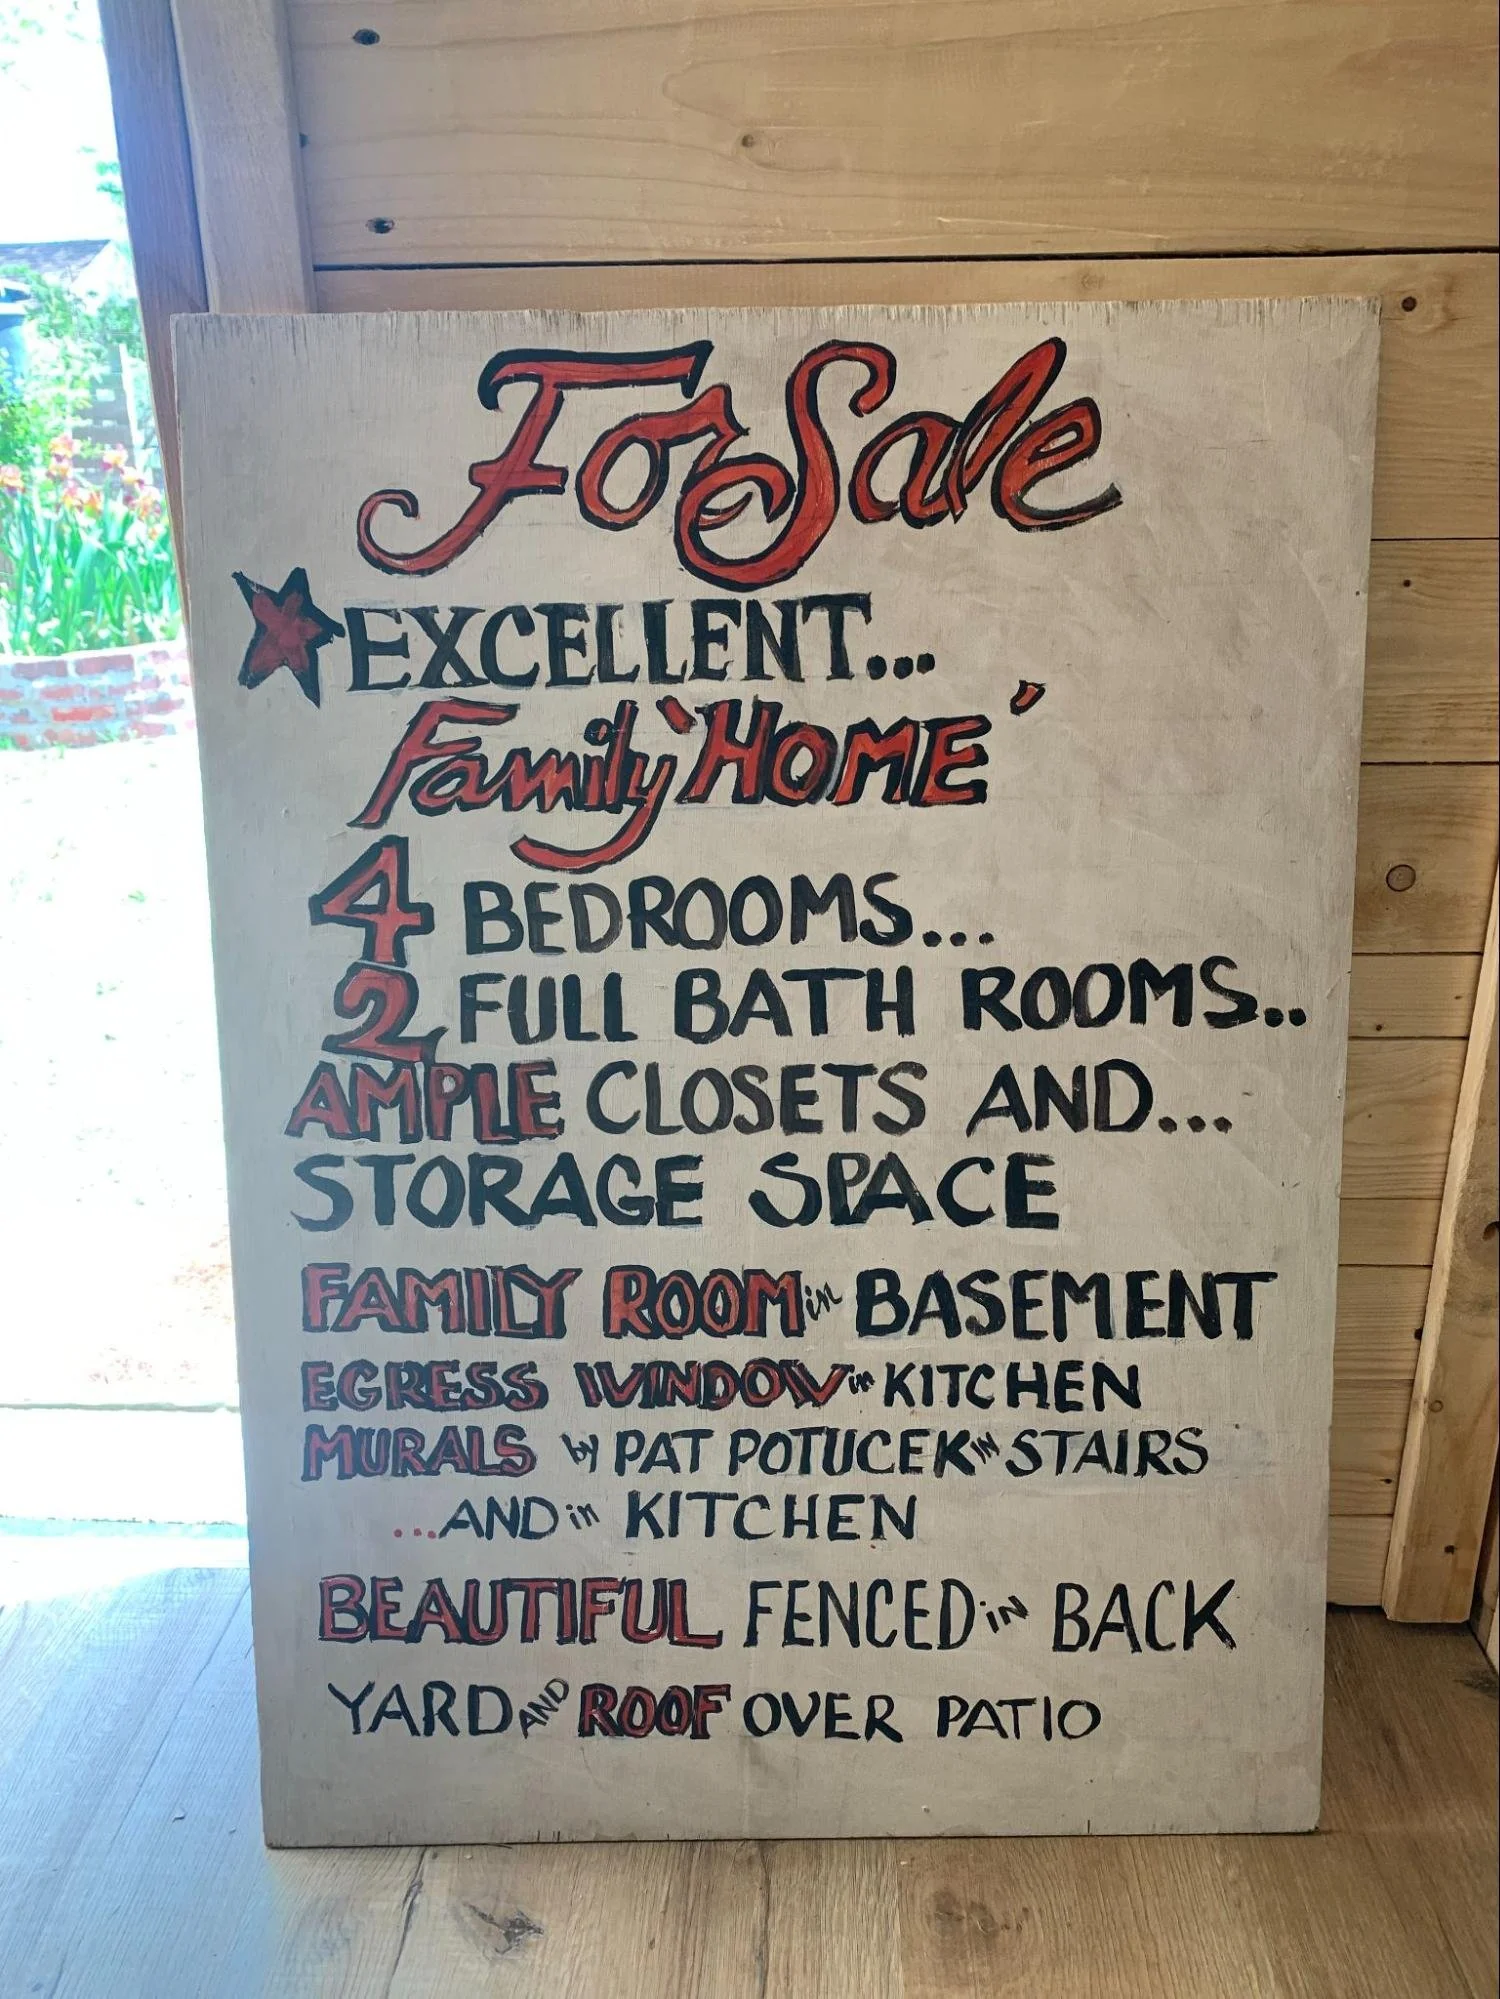 For Sale
EXCELLENT...
Family 'HOME'
4 BEDROOMS...
2 FULL BATH ROOMS..
AMPLE CLOSETS AND...
STORAGE SPACE
FAMILY ROOM in BASEMENT
EGRESS WINDOW in KITCHEN
MURALS by PAT POTUCEK IN STAIRS
...AND in KITCHEN
BEAUTIFUL FENCED in BACK
YARD AND ROOF OVER PATIO